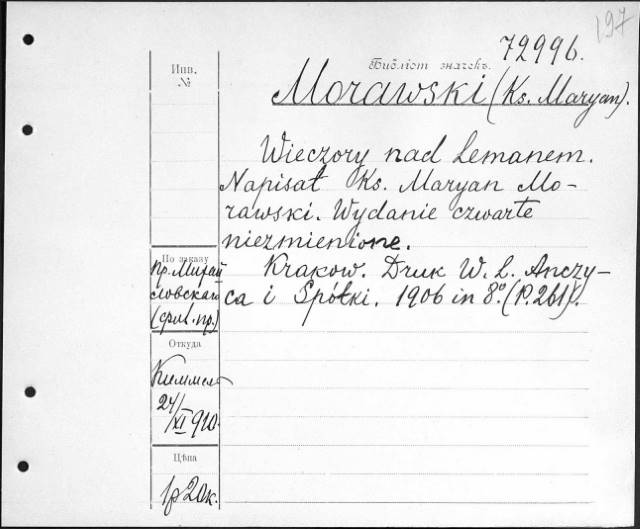 197
72996.
Библіот. значекъ.
Инв.
№
Morawski (Ks. Maryan).
Wieczory nad Lemanem.
Napisał Ks. Maryan Mo-
rawski. Wydanie czwarte
niezmienione.
Krakow. Druk W. L. Anczy-
ca i Spółki. 1906 in 8.° (P. 261).
По заказу
Пр. Мирай
словская
(фил. пр.)
Откуда
Киммель
24/XI 910.
Цѣна
1 р 20 к.